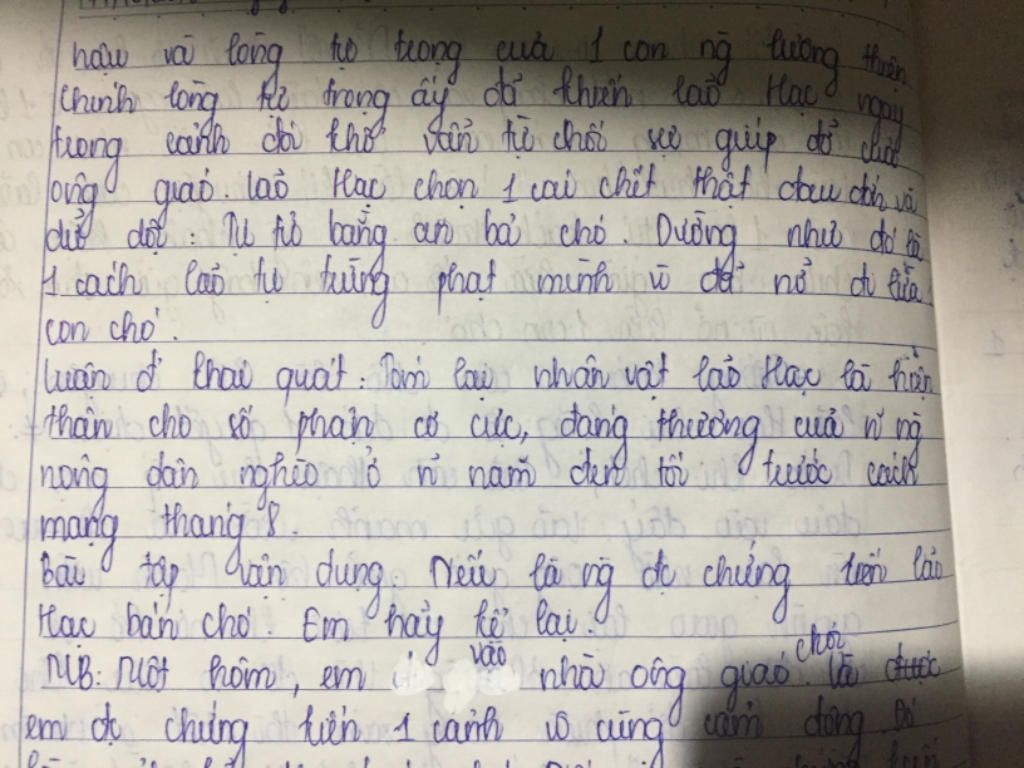 hậu và lòng tự trọng của 1 con ng lương thiện
Chính lòng tự trọng ấy đã khiến lão Hạc ngay
trong cảnh đói khổ vẫn từ chối sự giúp đỡ của
ông giáo. lão Hạc chọn 1 cái chết thật đau đớn và
dữ dội: Tự tử bằng ăn bả chó. Dường như đó là
1 cách lão tự trừng phạt mình vì đã nở đi lừa
con chó.
Luận đ khái quát: Tóm lại nhân vật lão Hạc là hiện
thân cho số phận cơ cực, đáng thương của n~ ng
nông dân nghèo ở n~ năm đen tối trước cách
mạng tháng 8.
Bài tập vận dụng. Nếu là ng đc chứng kiến lão
Hạc bán chó. Em hãy kể lại
MB: Một hôm, em vào nhà ông giáo chơi
em đc chứng kiến 1 cảnh vô cùng cảm động. Đó